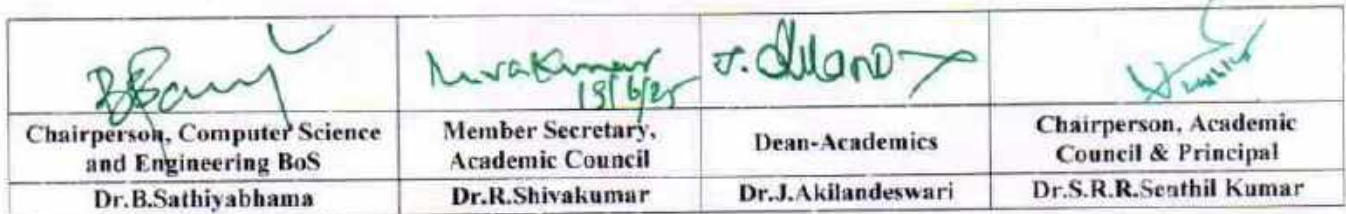 19/6/25
J.
Chairperson, Computer Science
and Engineering BoS
Member Secretary,
Academic Council
Dean-Academics
Chairperson, Academic
Council & Principal
Dr.B.Sathiyabhama
Dr.R.Shivakumar
Dr.J.Akilandeswari
Dr.S.R.R.Senthil Kumar